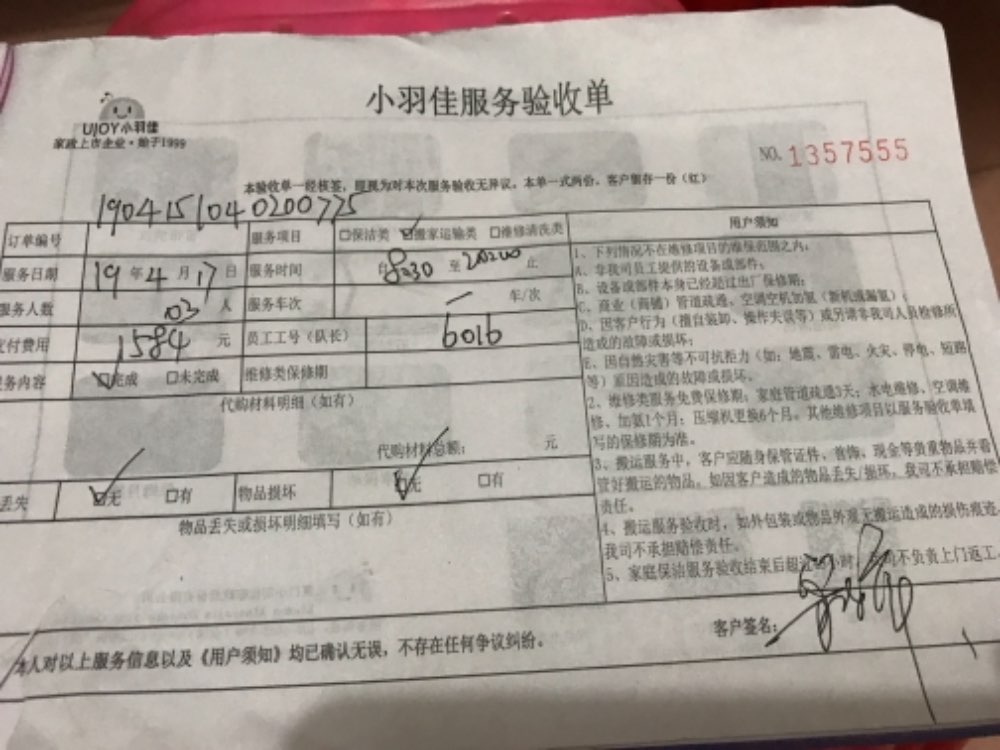 小羽佳服务验收单
UJOY小羽佳
家政上市企业·始于1999
NO. 1357555
本验收单一经核签，即视为对本次服务验收无异议。本单一式两份，客户留存一份（红）
190415104020077 5
订单编号 服务项目 □保洁类 ☑搬家运输类 □维修清洗类 用户须知
服务日期 19 年 4 月 17 日 服务时间 自 8:30 至 20:00 止
服务人数 03 人 服务车次 — 车/次
付费用 1584 元 员工工号（队长） 6016
务内容 ☑完成 □未完成 维修类保修期
代购材料明细（如有）
代购材料总额： 元
丢失 ☑无 □有 物品损坏 ☑无 □有
物品丢失或损坏明细填写（如有）
1、下列情况不在维修项目的维保范围之内：
A、非我司员工提供的设备或部件；
B、设备或部件本身已经超过出厂保修期；
C、商业（商铺）管道疏通、空调空机加氨（新机或漏氨）；
D、因客户行为（擅自装卸、操作失误等）或另请非我司人员检修所
造成的故障或损坏；
E、因自然灾害等不可抗拒力（如：地震、雷电、火灾、停电、短路
等）原因造成的故障或损坏。
2、维修类服务免费保修期：家庭管道疏通3天；水电维修、空调维
修、加氨1个月；压缩机更换6个月。其他维修项目以服务验收单填
写的保修期为准。
3、搬运服务中，客户应随身保管证件、首饰、现金等贵重物品并看
管好搬运的物品。如因客户造成的物品丢失/损坏，我司不承担赔偿
责任。
4、搬运服务验收时，如外包装或物品外观无搬运造成的损伤痕迹，
我司不承担赔偿责任。
5、家庭保洁服务验收结束后超过 小时，我司不负责上门返工。
客户签名：
本人对以上服务信息以及《用户须知》均已确认无误，不存在任何争议纠纷。